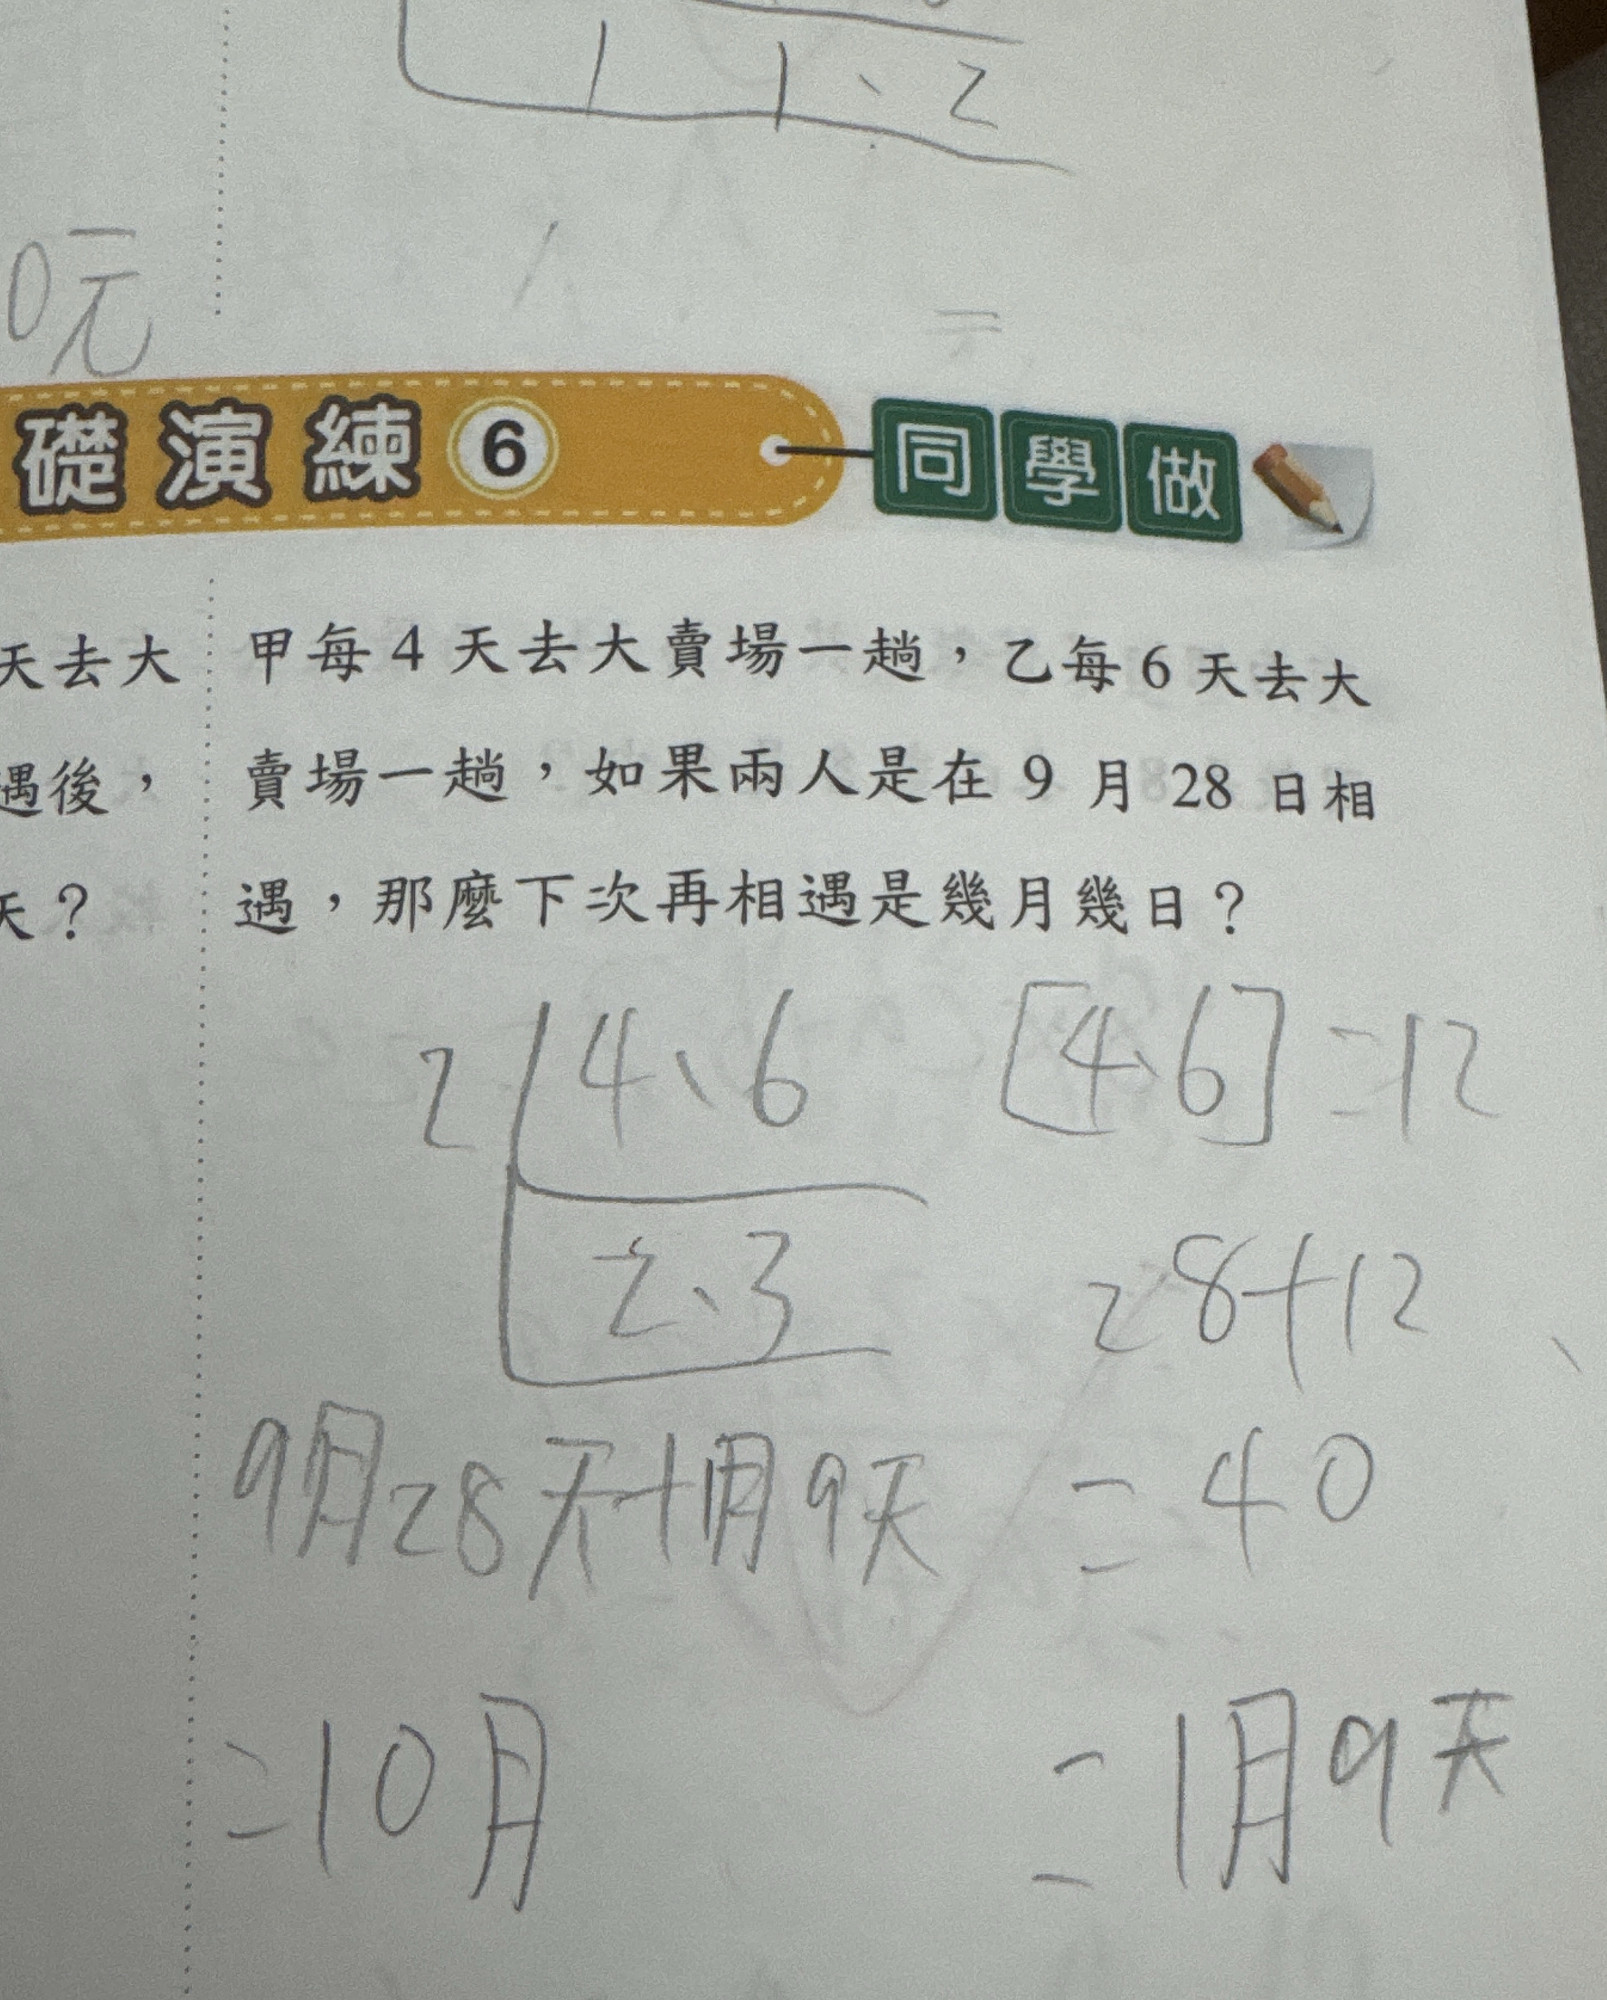 1 1、2
0元
礎演練6 同學做
天去大
遇後，
天？
甲每4天去大賣場一趟，乙每6天去大
賣場一趟，如果兩人是在9月28日相
遇，那麼下次再相遇是幾月幾日？
2 4、6 [4、6]=12
2、3 28+12
9月28天+1月9天 =40
=10月 =1月9天